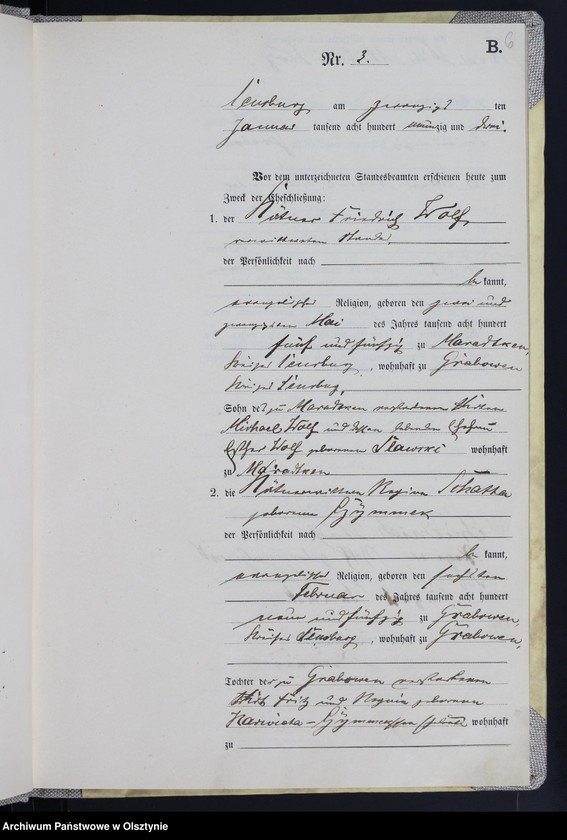 B. 6
Nr. 3.
Sensburg am zwanzigs ten
Januar tausend acht hundert neunzig und drei.
Vor dem unterzeichneten Standesbeamten erschienen heute zum
Zweck der Eheschließung:
1. der Kätner Friedrich Wolf,
verwittweten Standes,
der Persönlichkeit nach
be kannt,
evangelischer Religion, geboren den zwei und
zwanzigsten Mai des Jahres tausend acht hundert
fünf und fünfzig zu Maradtken,
Kreises Sensburg, wohnhaft zu Grabowen
Kreises Sensburg,
Sohn des zu Maradtken verstorbenen Wirthen
Michael Wolf und dessen lebenden Ehefrau
Esther Wolf geborenen Slawski wohnhaft
zu Maradtken
2. die Kätnerwittwe Regina
geborene Gzymmek
der Persönlichkeit nach
be kannt,
evangelischer Religion, geboren den sechsten
Februar des Jahres tausend acht hundert
neun und fünfzig zu Grabowen,
Kreises Sensburg, wohnhaft zu Grabowen,
Tochter der zu Grabowen verstorbenen
Wirth Fritz und Regina geborenen
wohnhaft
zu
Archiwum Państwowe w Olsztynie